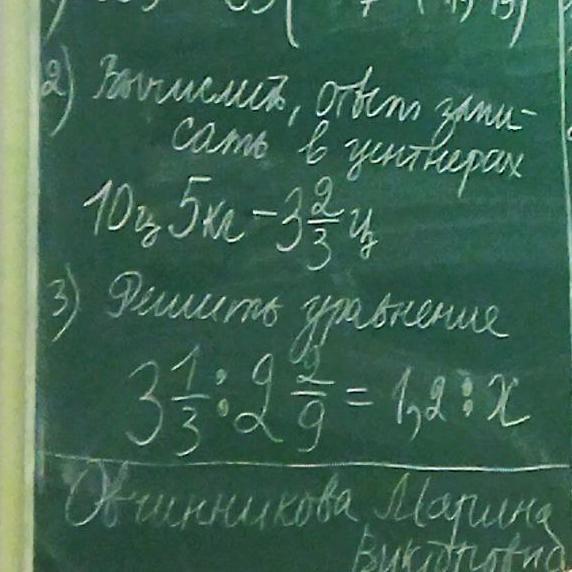 2) Вычислить, ответ запи-
сать в центнерах
10ц 5кг - 3 2/3 ц
3) Решить уравнение
3 1/3 : 2 2/9 = 1,2 : x
Овчинникова Марина
Викторовна